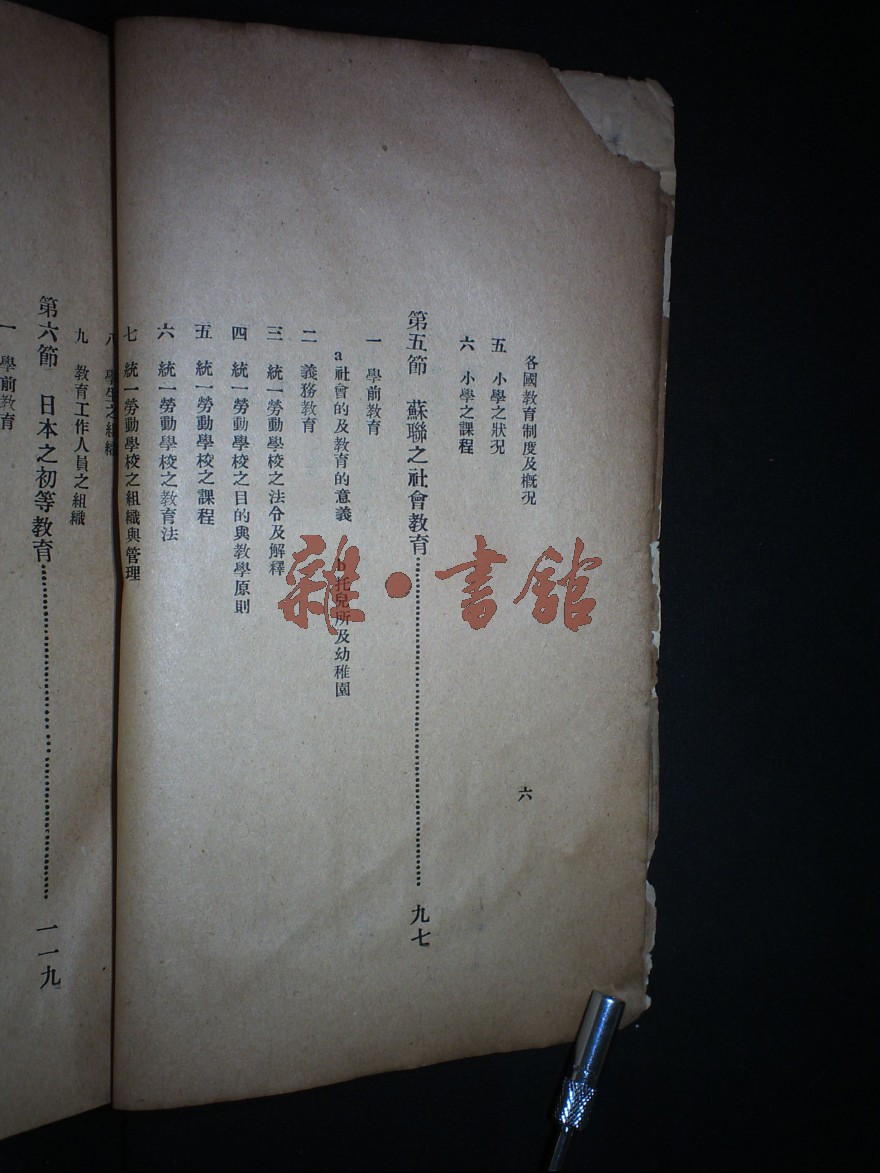 各國教育制度及概況
六
五 小學之狀況
六 小學之課程
第五節 蘇聯之社會教育 九七
一 學前教育
a社會的及教育的意義 b托兒所及幼稚園
二 義務教育
三 統一勞動學校之法令及解釋
四 統一勞動學校之目的與教學原則
五 統一勞動學校之課程
六 統一勞動學校之教育法
七 統一勞動學校之組織與管理
八 學生之組織
九 教育工作人員之組織
第六節 日本之初等教育 一一九
一 學前教育
雜·書館